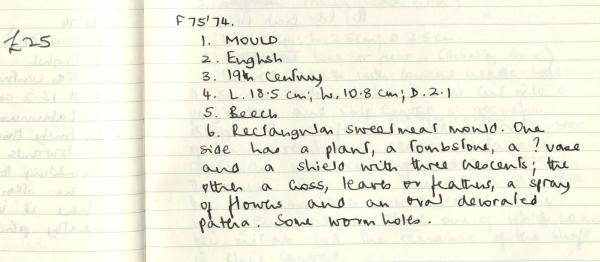 £25
F75'74.
1. MOULD
2. English
3. 19th Century
4. L. 18.5 cm; W. 10.8 cm; D. 2.1
5. Beech
6. Rectangular sweetmeat mould. One
side has a plant, a tombstone, a ? vase
and a shield with three crescents; the
other a cross, leaves or feathers, a spray
of flowers and an oval decorated
patera. Some worm holes.